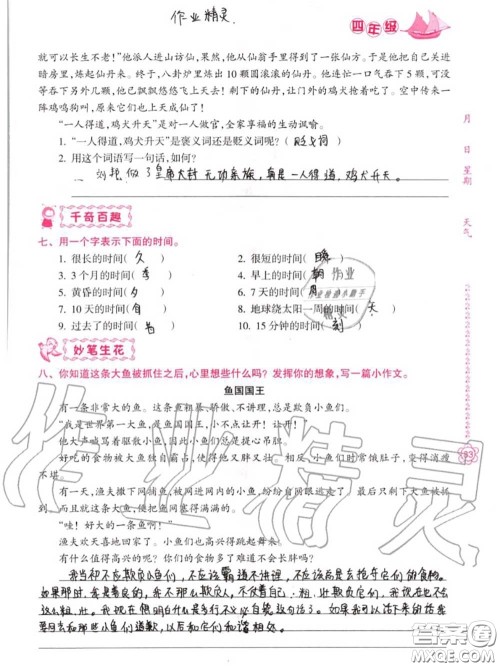 作业精灵
四年级
就可以长生不老！”他派人进山访仙，果然，他从仙翁手里得到了一张仙方。于是他把自己关进
暗房里，炼起仙丹来。终于，八卦炉里炼出10颗圆滚滚的仙丹。他连忙一口气吞下5颗，可没
等吞下另外几颗，他已飘飘悠悠飞上天去！剩下的仙丹，让门外的鸡犬抢着吃了。空中传来一
阵鸡鸣狗叫，原来它们也上天成仙了！
“一人得道，鸡犬升天”是对一人做官，全家享福的生动讽喻。
1. “一人得道，鸡犬升天”是褒义词还是贬义词呢？（贬义词）
2. 用这个词语写一句话，如何？
做了皇帝大封无功亲族，真是一人得道，鸡犬升天。
月 日 星期 天气
千奇百趣
七、用一个字表示下面的时间。
1. 很长的时间（久） 2. 很短的时间（瞬）
3. 3个月的时间（季） 4. 早上的时间（朝）
5. 黄昏的时间（夕） 6. 7天的时间（周）
7. 10天的时间（旬） 8. 地球绕太阳一周的时间（ ）
9. 过去了的时间（昔） 10. 15分钟的时间（刻）
妙笔生花
八、你知道这条大鱼被抓住之后，心里想些什么吗？发挥你的想象，写一篇小作文。
鱼国国王
有一条非常大的鱼。这条鱼粗暴、骄傲、不讲理，总是欺负小鱼们。
“我是世界第一大鱼，是鱼国国王，小不点让开！让开！”
他大声喊骂着驱散小鱼，小鱼们总是提心吊胆。
好吃的食物被大鱼独自霸占，使得他又胖又壮。相反，小鱼们时常饿肚子，变得消瘦
不堪。
有一天，渔夫撒下网捕鱼，被网进网内的小鱼，纷纷由网眼里钻出来，逃走了。
只有大鱼，使得渔网塞得满满的。
“哇！好大的一条鱼啊！”
渔夫欢天喜地回家了。小鱼们也高兴得跳起舞来。
有什么值得高兴的呢？你们的食物多了难道不会长胖吗？
我当初不应欺负小鱼们，不应该霸道不讲理，不应该总是去抢夺它们的食物。
如果那时，我是善良的，我不那么欺负人，不仗着自己
这么粗壮。我现在很明白什么是多行不义必自毙这句话了。如果我可以活下来的话我
要回去和那些小鱼们道歉，以后和它们和谐相处。
93
作业精灵